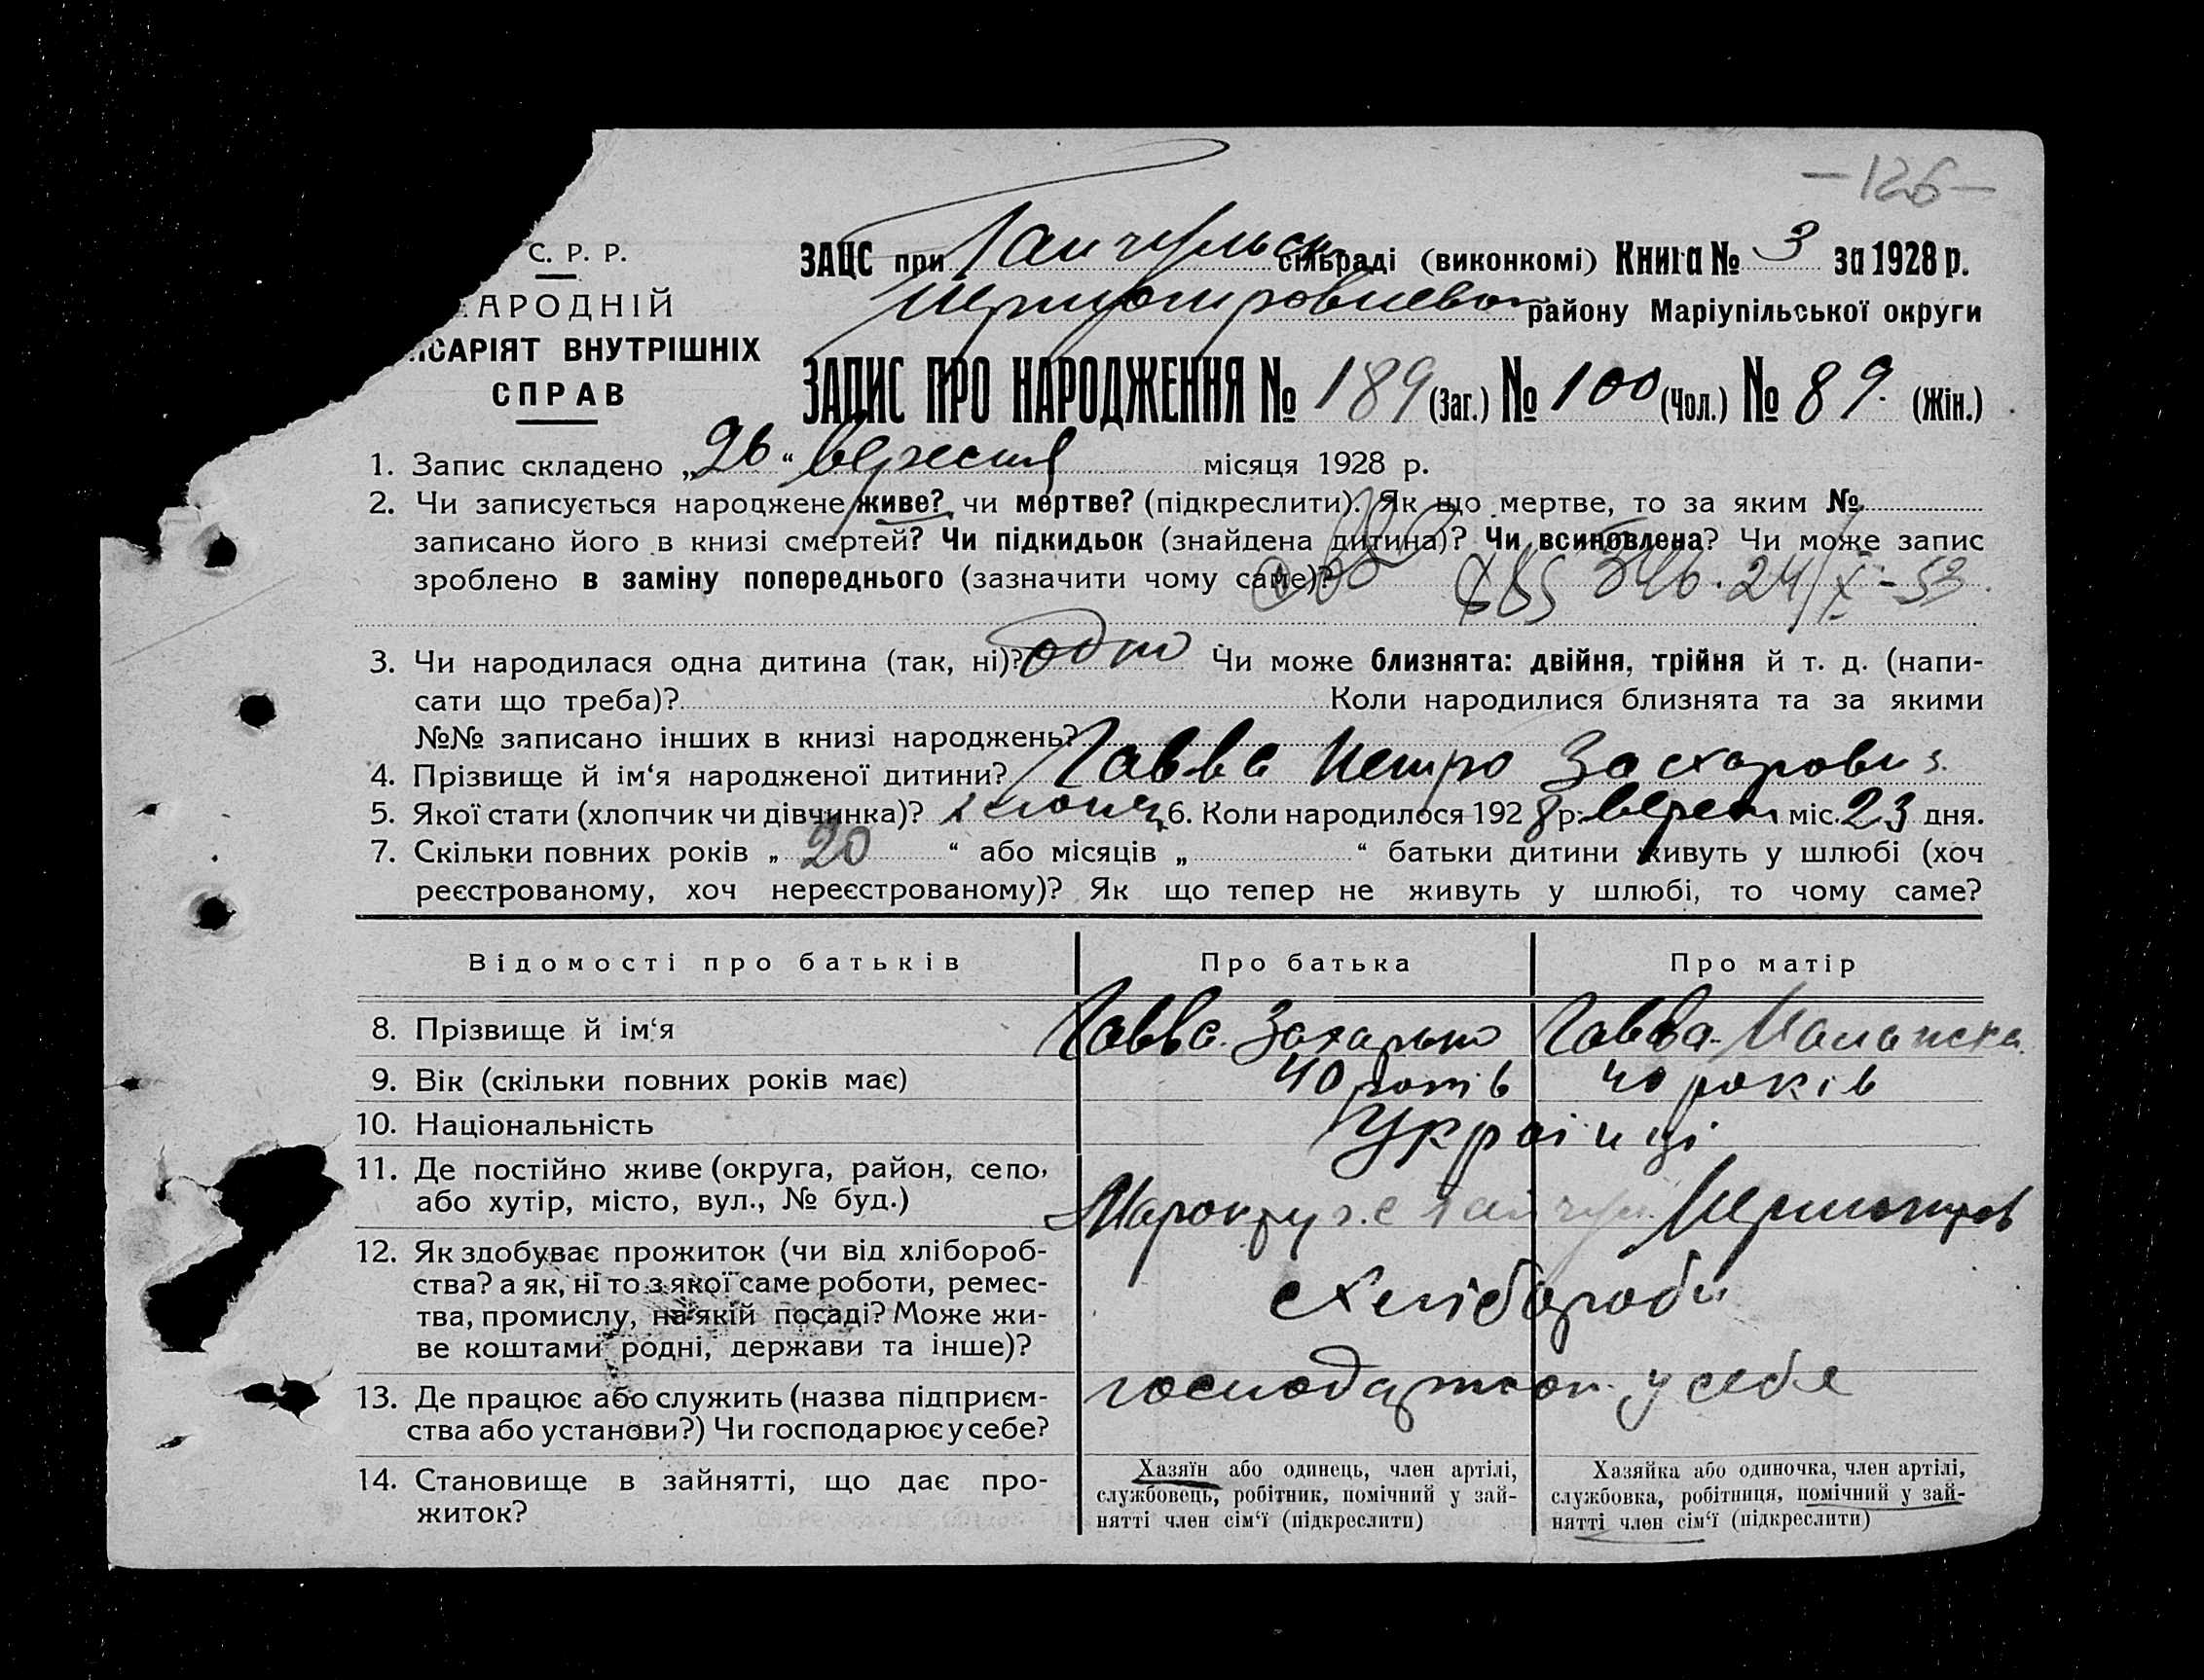 -126-
С. Р. Р.
АРОДНІЙ
ІСАРІЯТ ВНУТРІШНІХ
СПРАВ
ЗАЦС при Гайчульск сільраді (виконкомі) Книга № 3 за 1928 р.
району Маріупільської округи
ЗАПИС ПРО НАРОДЖЕННЯ № 189 (Заг.) № 100 (Чол.) № 89. (Жін.)
1. Запис складено „26“ вересня місяця 1928 р.
2. Чи записується народжене живе? чи мертве? (підкреслити). Як що мертве, то за яким №
записано його в книзі смертей? Чи підкидьок (знайдена дитина)? Чи всиновлена? Чи може запис
зроблено в заміну попереднього (зазначити чому саме)? 346. 24/X - 53
3. Чи народилася одна дитина (так, ні)? одно Чи може близнята: двійня, трійня й т. д. (напи-
сати що треба)? Коли народилися близнята та за якими
№№ записано інших в книзі народжень?
4. Прізвище й ім‘я народженої дитини? Гавва Петро Захарович
5. Якої стати (хлопчик чи дівчинка)? хлопец 6. Коли народилося 1928 р. верест міс. 23 дня.
7. Скільки повних років „ 20 “ або місяців „ “ батьки дитини живуть у шлюбі (хоч
реєстрованому, хоч нереєстрованому)? Як що тепер не живуть у шлюбі, то чому саме?
Відомості про батьків Про батька Про матір
8. Прізвище й ім‘я Гавва Захарько Гавва Маланска
9. Вік (скільки повних років має) 40 років 40 років
10. Національність Українці
11. Де постійно живе (округа, район, село,
або хутір, місто, вул., № буд.) Марокруг с. Гайчул
12. Як здобуває прожиток (чи від хлібороб-
ства? а як, ні то з якої саме роботи, ремес-
тва, промислу, на якій посаді? Може жи-
ве коштами родні, держави та інше)? Хлібороби
13. Де працює або служить (назва підприєм-
ства або установи?) Чи господарює у себе? у себе
14. Становище в зайнятті, що дає про-
житок?
Хазяїн або одинець, член артілі,
службовець, робітник, помічний у зай-
нятті член сім‘ї (підкреслити)
Хазяйка або одиночка, член артілі,
службовка, робітниця, помічний у зай-
нятті член сім‘ї (підкреслити)